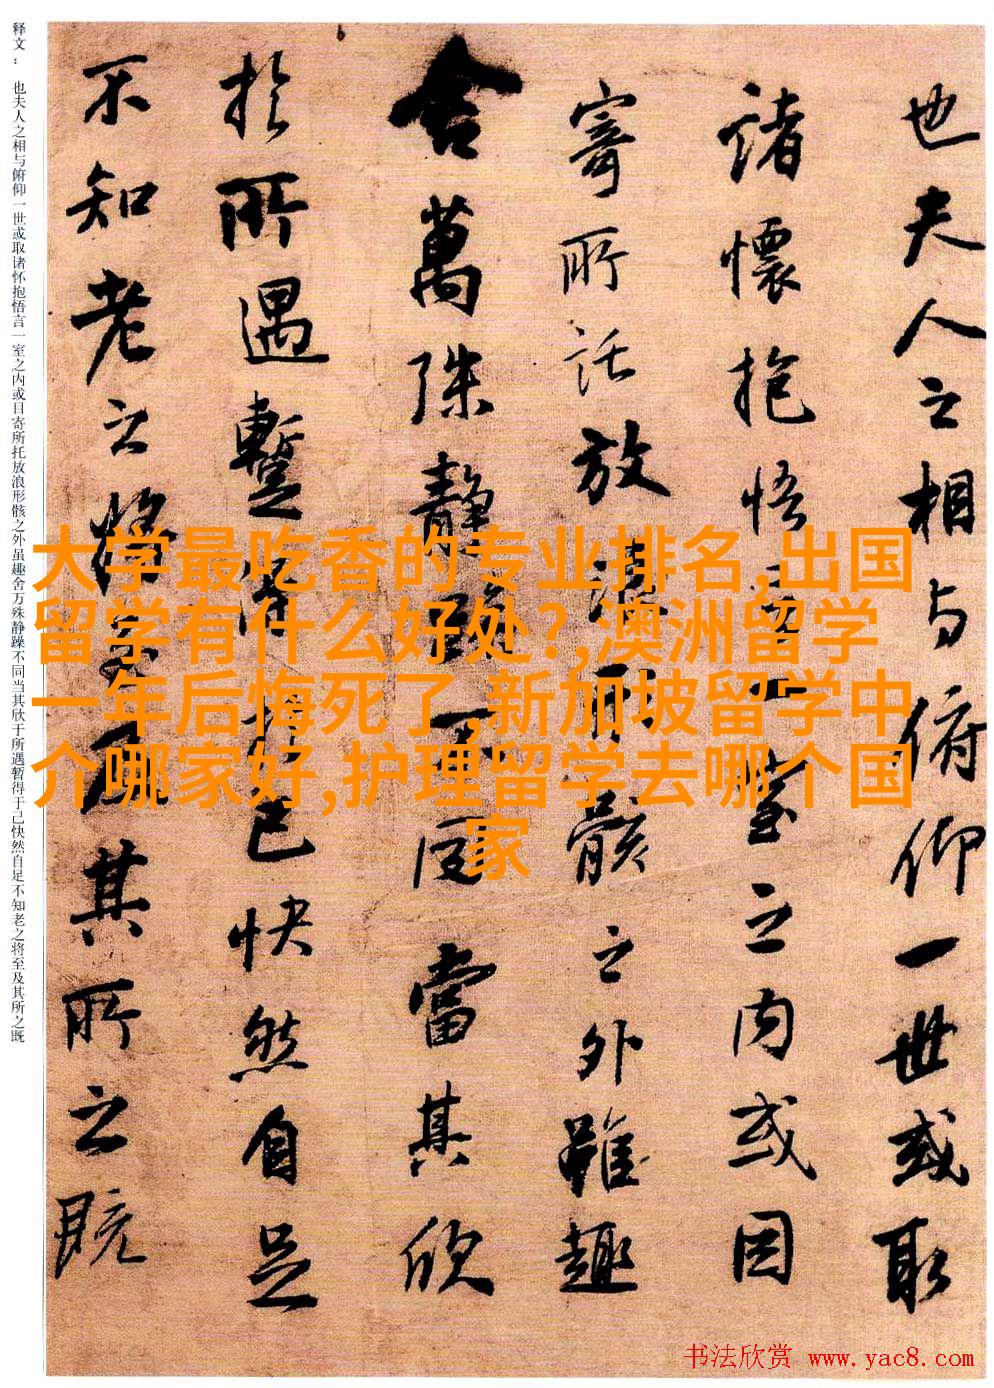 也夫人之相与俯仰一世或取
諸懷抱悟言一室之内或因
寄所託放浪形骸之外雖趣
舍萬殊靜躁不同當其欣
於所遇暫得於己快然自足
不知老之將至及其所之既
释文：也夫人之相与俯仰一世或取诸怀抱悟言一室之内或目寄所托放浪形骸之外虽趣舍万殊静躁不同当其欣于所遇暂得于己快然自足不知老之将至及其所之既
大学最吃香的专业排名,出国
留学有什么好处?,澳洲留学
一年后悔死了,新加坡留学中
介哪家好,护理留学去哪个国
家
书法欣赏 www.yac8.com